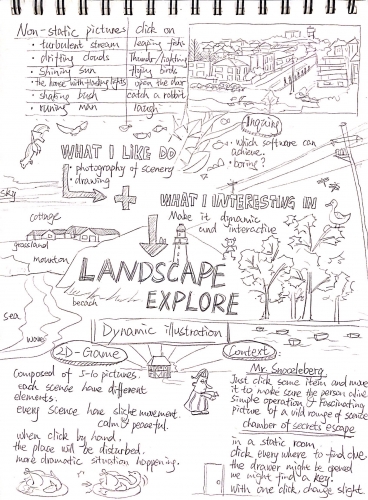 Non-static pictures
click on
• turbulent stream
leaping fish
• drifting clouds
thunder/lighting
• shining sun
flying birds
• the house with flashing lights
open the door
• shaking bush
catch a rabbit
• runing man
laugh
Inquiring
• which software can
achieve.
• boring?
WHAT I LIKE DO
• photography of scenery
• drawing
WHAT I INTERESTING IN
Make it dynamic
and interactive
sky
cottage
grassland
mountain
LANDSCAPE
EXPLORE
beach
sea
wave
Dynamic illustration
2D-Game
Composed of 5-10 pictures.
each scence have different
elements.
every scence have slight movement.
calm & peaceful.
when click by hand.
the place will be disturbed.
more dramatic situation happening.
Context
Mr. Snoozleberg
Just click some item and move
it to make sure the person alive
simple operation & Fascinating
picture of a wild range of scence
chamber of secrets escape
in a static room
click every where to find clue.
the drawer might be opened
we might find a key.
with one click, change slight